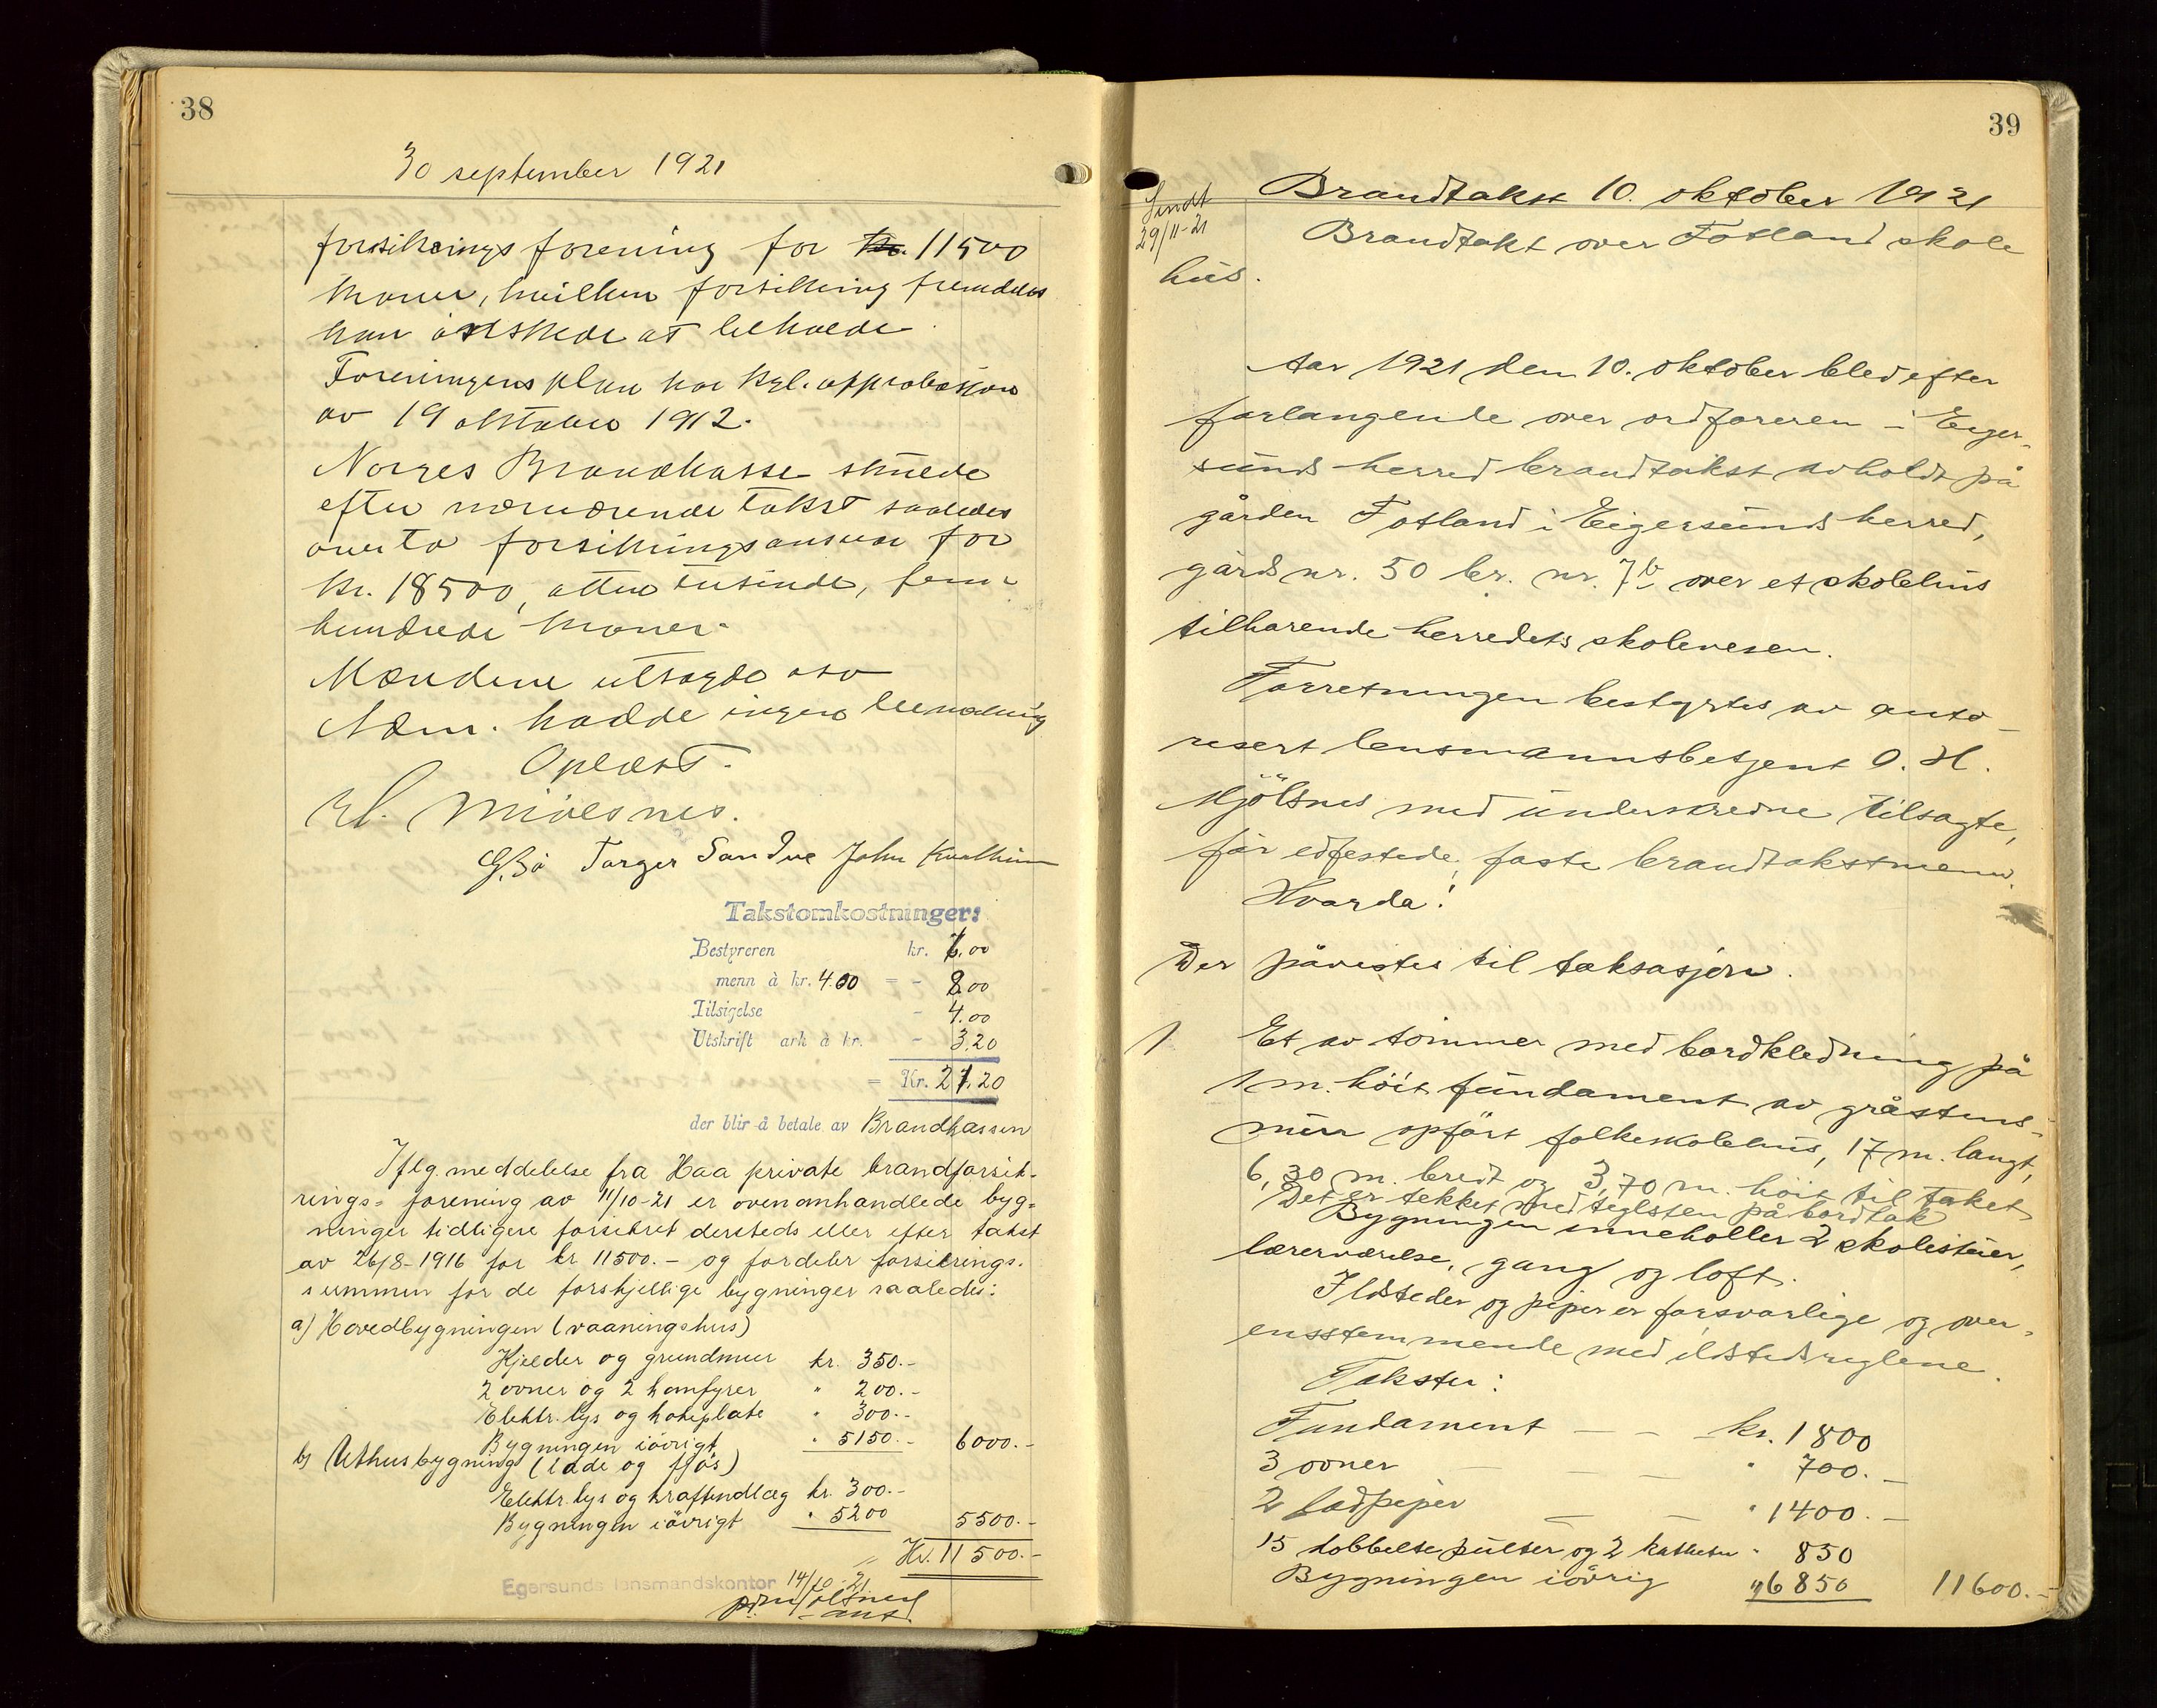 38
30 september 1921
forsikringsforening for kr. 11500
kroner, hvilken forsikring fremdeles
han ønskede at beholde.
Foreningens plan har kgl. approbasjon
av 19 oktober 1912.
Norges Brandkasse skulde
efter nærværende takst saaledes
overta forsikringsansvar for
kr. 18500, atten tusinde, fem
hundrede kroner.
Mændene utsagde osv
Adm. hadde ingen bemærkning
Oplæst.
Mjölsnes.
G. Bö Torger Sandve John Kvalheim
Takstomkostninger:
Bestyreren kr. 6.00
menn à kr. 4.00 = - 8.00
Tilsigelse - 4.00
Utskrift ark à kr. - 3.20
= Kr. 21.20
der blir å betale av Brandkassen
Iflg. meddelelse fra Haa private brandforsik-
rings- forening av 11/10-21 er ovenomhandlede byg-
ninger tidligere forsikret dersteds eller efter takst
av 26/8-1916 for kr 11500.- og fordeler forsikrings-
summen for de forskjellige bygninger saaledes:
a) Hovedbygningen (vaaningshus)
Kjelder og grundmur kr. 350.-
2 ovner og 2 komfyrer " 200.-
Elektr. lys og kokeplate " 300.-
Bygningen iövrigt " 5150.- 6000.-
b) Uthusbygning (lade og fjös)
Elektr. lys og kraftindlæg kr. 300.-
Bygningen iövrigt " 5200 5500.-
Kr. 11500.-
Egersunds lensmandskontor 14/10-21
Mjölsnes
ass.
39
Sendt
29/11-21
Brandtakst 10. oktober 1921
Brandtakt over Fotland skole
hus.
Aar 1921 den 10. oktober blev efter
forlangende over ordføreren i Eiger-
sunds herred brandtakst avholdt på
gården Fotland i Eigersunds herred,
gårds nr. 50 br. nr. 7b over et skolehus
tilhørende herredets skolevesen.
Forretningen bestyrtes av auto-
risert lensmannsbetjent O. H.
Mjölsnes med underskrevne tilsagte,
før edfestede, faste brandtakstmenn.
Hvorda!
Der påvistes til taksasjon.
1 Et av tömmer med bordkledning på
1 m. höit fundament av gråstens-
mur opfört folkeskolehus, 17 m. langt,
6,30 m. bredt og 3,70 m. höit til taket
Det er tekket med teglsten på bordtak
Bygningen inneholler 2 skolestuer,
lærerværelse, gang og loft.
Ildsteder og piper er forsvarlige og over-
ensstemmende med ildstedsreglene.
Takster:
Fundament - - kr. 1800
3 ovner - - - " 700.-
2 fadpiper - - " 1400.-
15 dobbelte pulter og 2 kateter " 850
Bygningen iövrig " 6850 11600.-